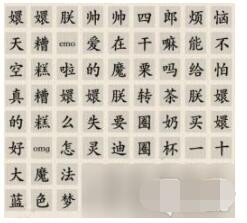 嬛嬛朕帅帅四郎烦恼
天糟emo爱在干嘛能不
空糕啦的魔栗吗给怕
真糟嬛嬛朕转茶朕嬛
的糕么失要圈奶买嬛
好omg怎灵迪圈杯一十
大魔法
蓝色梦